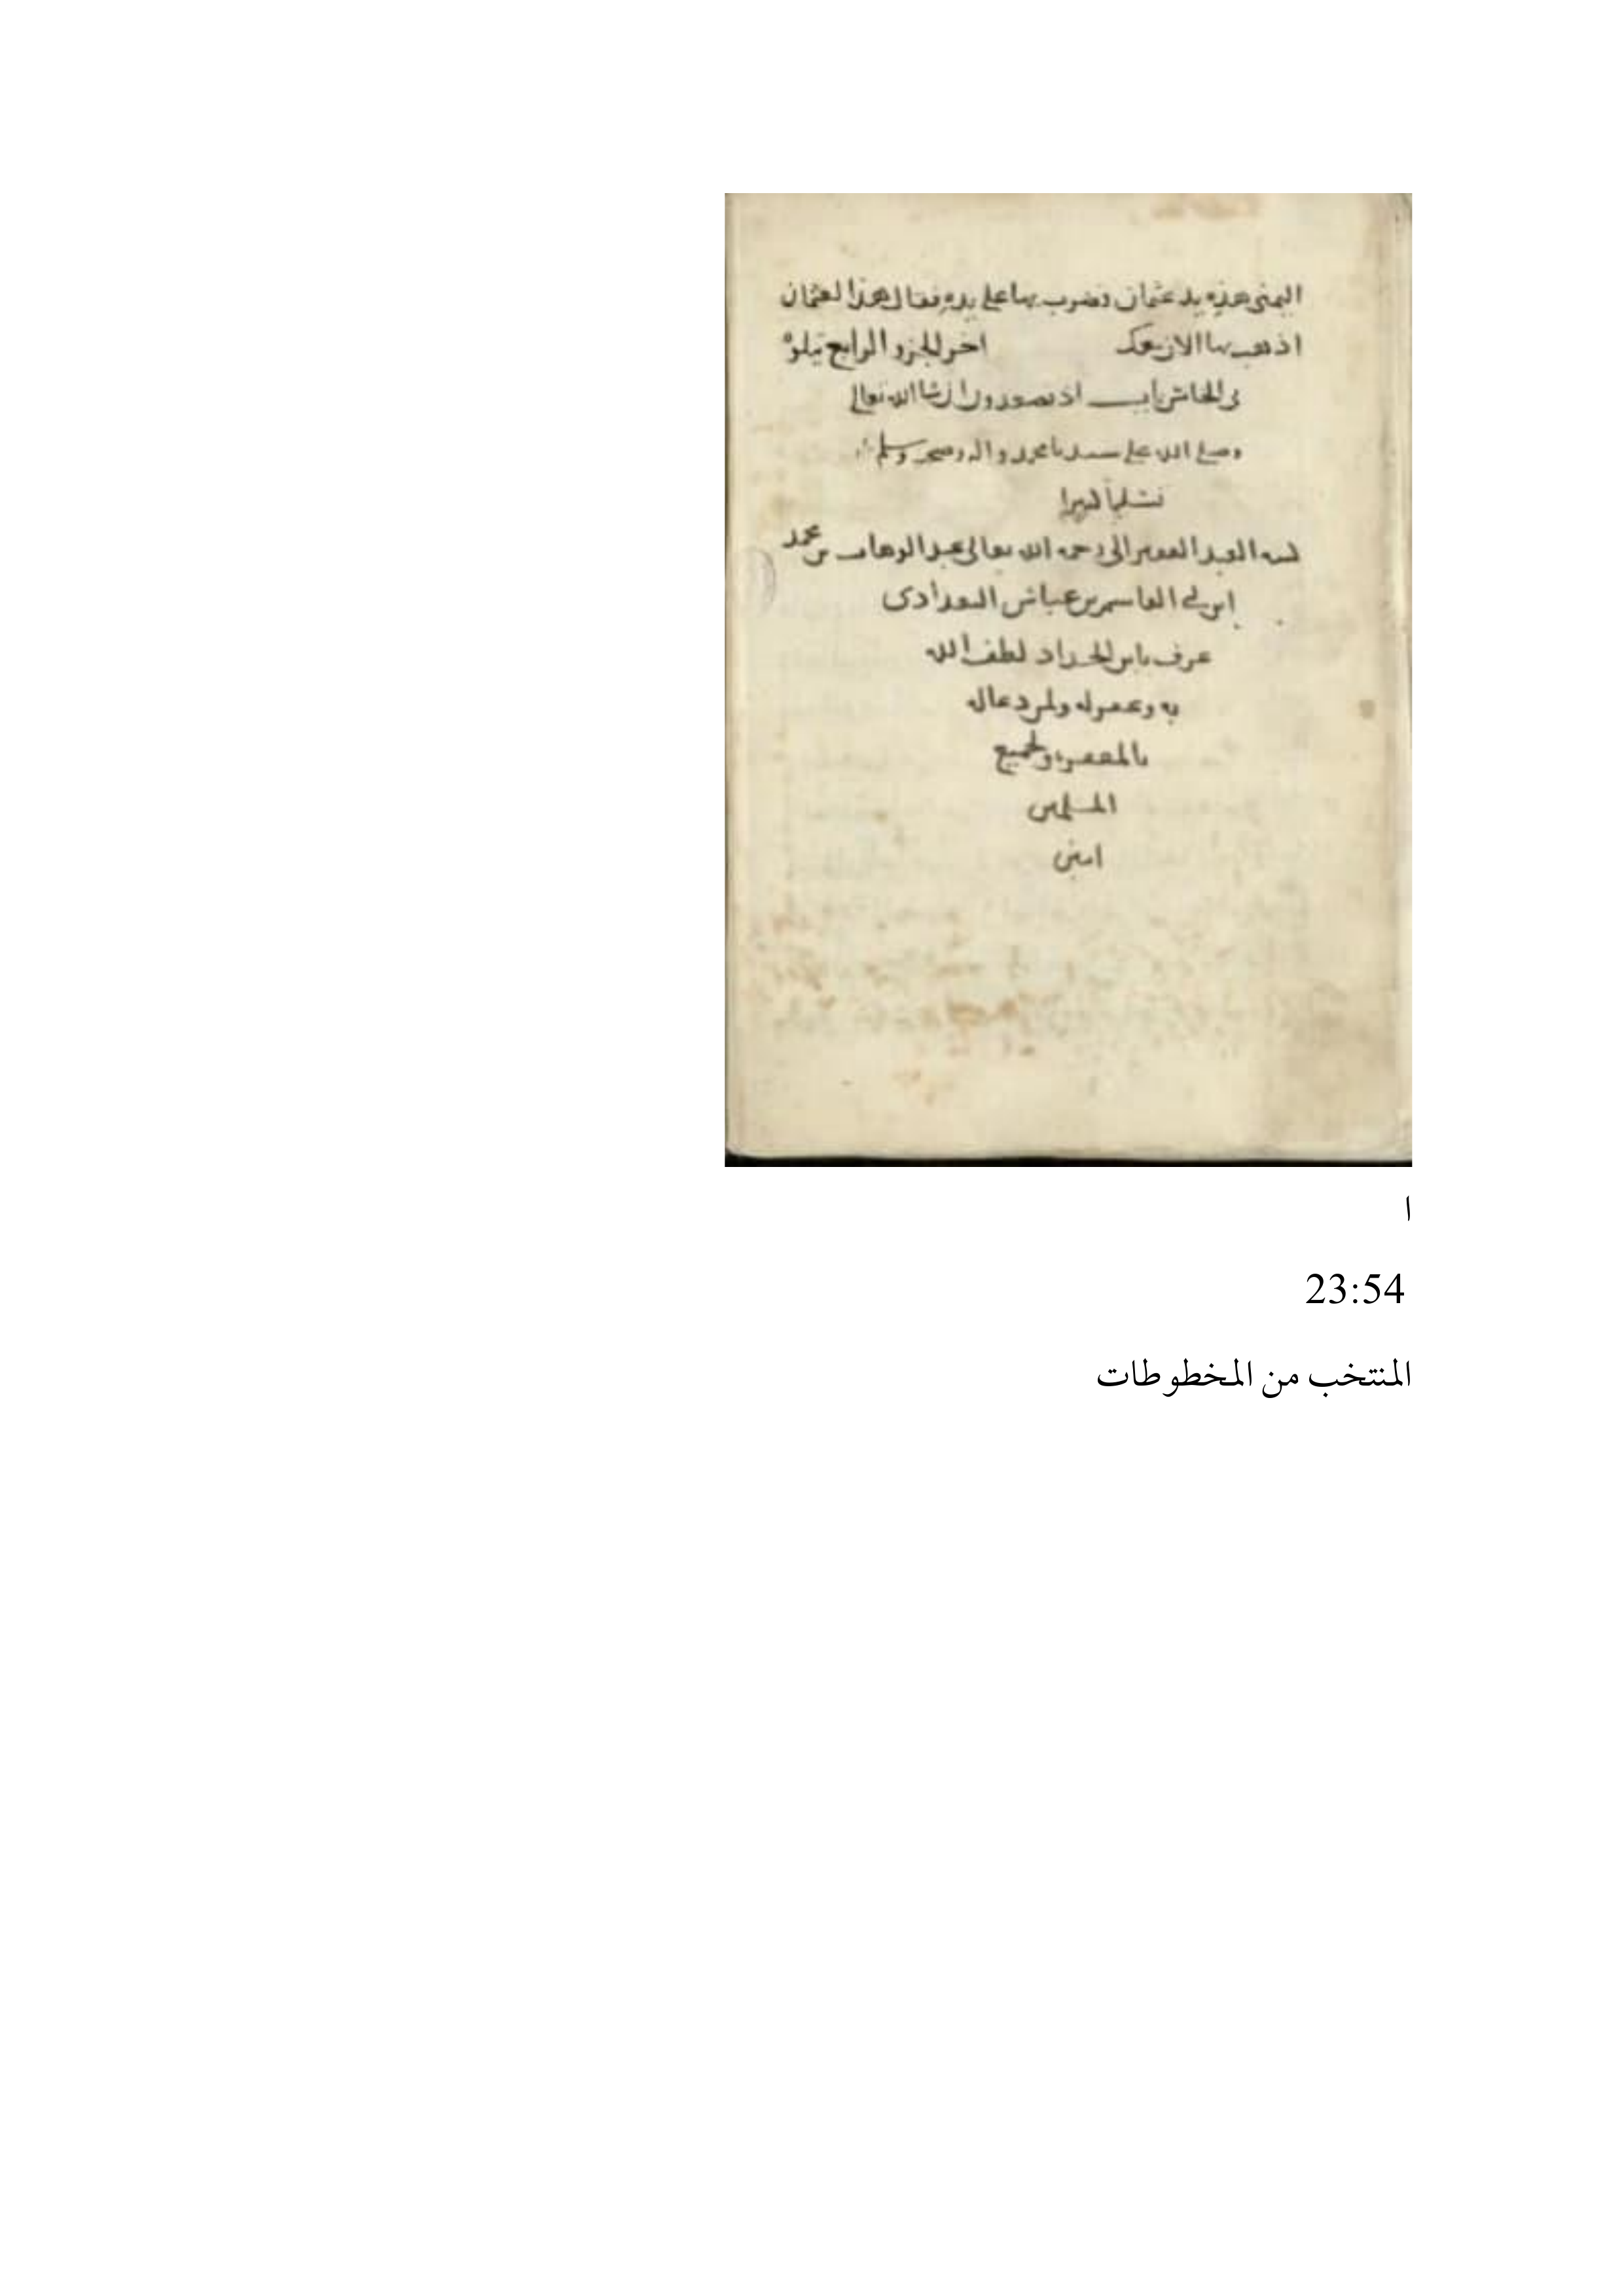 اليمنى هذه يد عثمان فضرب بها على يده فقال هذا لعثمان
اذهب بها الان معك اخر الجزو الرابع يتلوه
في الخامس باب اذ تصعدون ان شا الله تعالى
وصلى الله على سيدنا محمد واله وصحبه وسلم
تسليما كثيرا
كتبه العبد الفقير الى رحمه الله تعالى عبد الوهاب بن محمد
ابن ابي القاسم بن عباس البغدادى
عرف بابن الحداد لطف الله
به وغفر له ولمن دعا له
بالمغفره ولجميع
المسلمين
امين
ا
23:54
المنتخب من المخطوطات